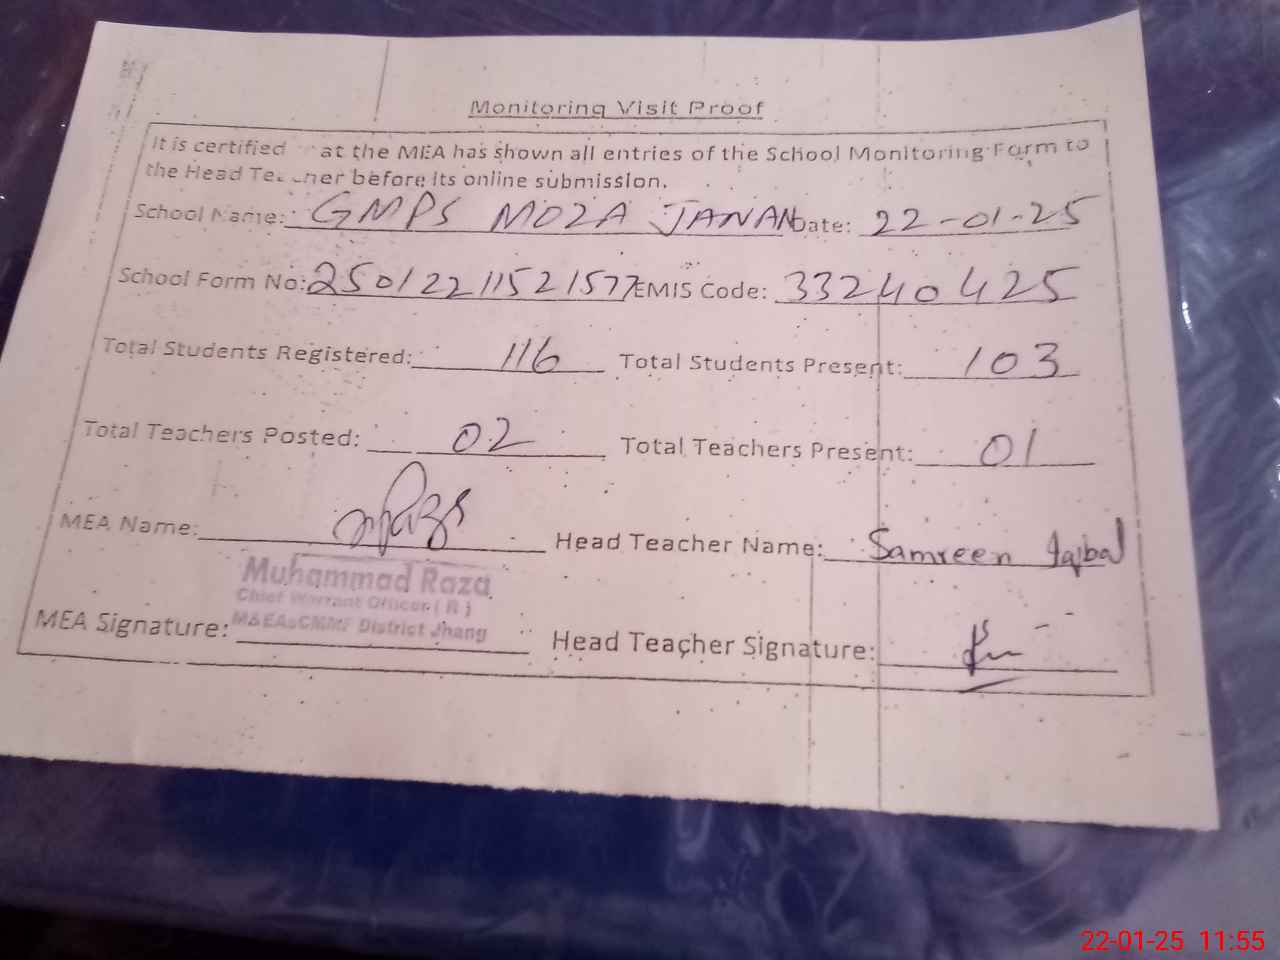 Monitoring Visit Proof
It is certified at the MEA has shown all entries of the School Monitoring Form to
the Head Teacher before its online submission.
School Name: GMPS MOZA JANAN Date: 22-01-25
School Form No: 25012211521577 EMIS Code: 33240425
Total Students Registered: 116 Total Students Present: 103
Total Teachers Posted: 02 Total Teachers Present: 01
MEA Name: Head Teacher Name: Samreen Iqbal
Muhammad Raza
Chief Warrant Officer ( R )
District Jhang
MEA Signature: Head Teacher Signature:
22-01-25 11:55